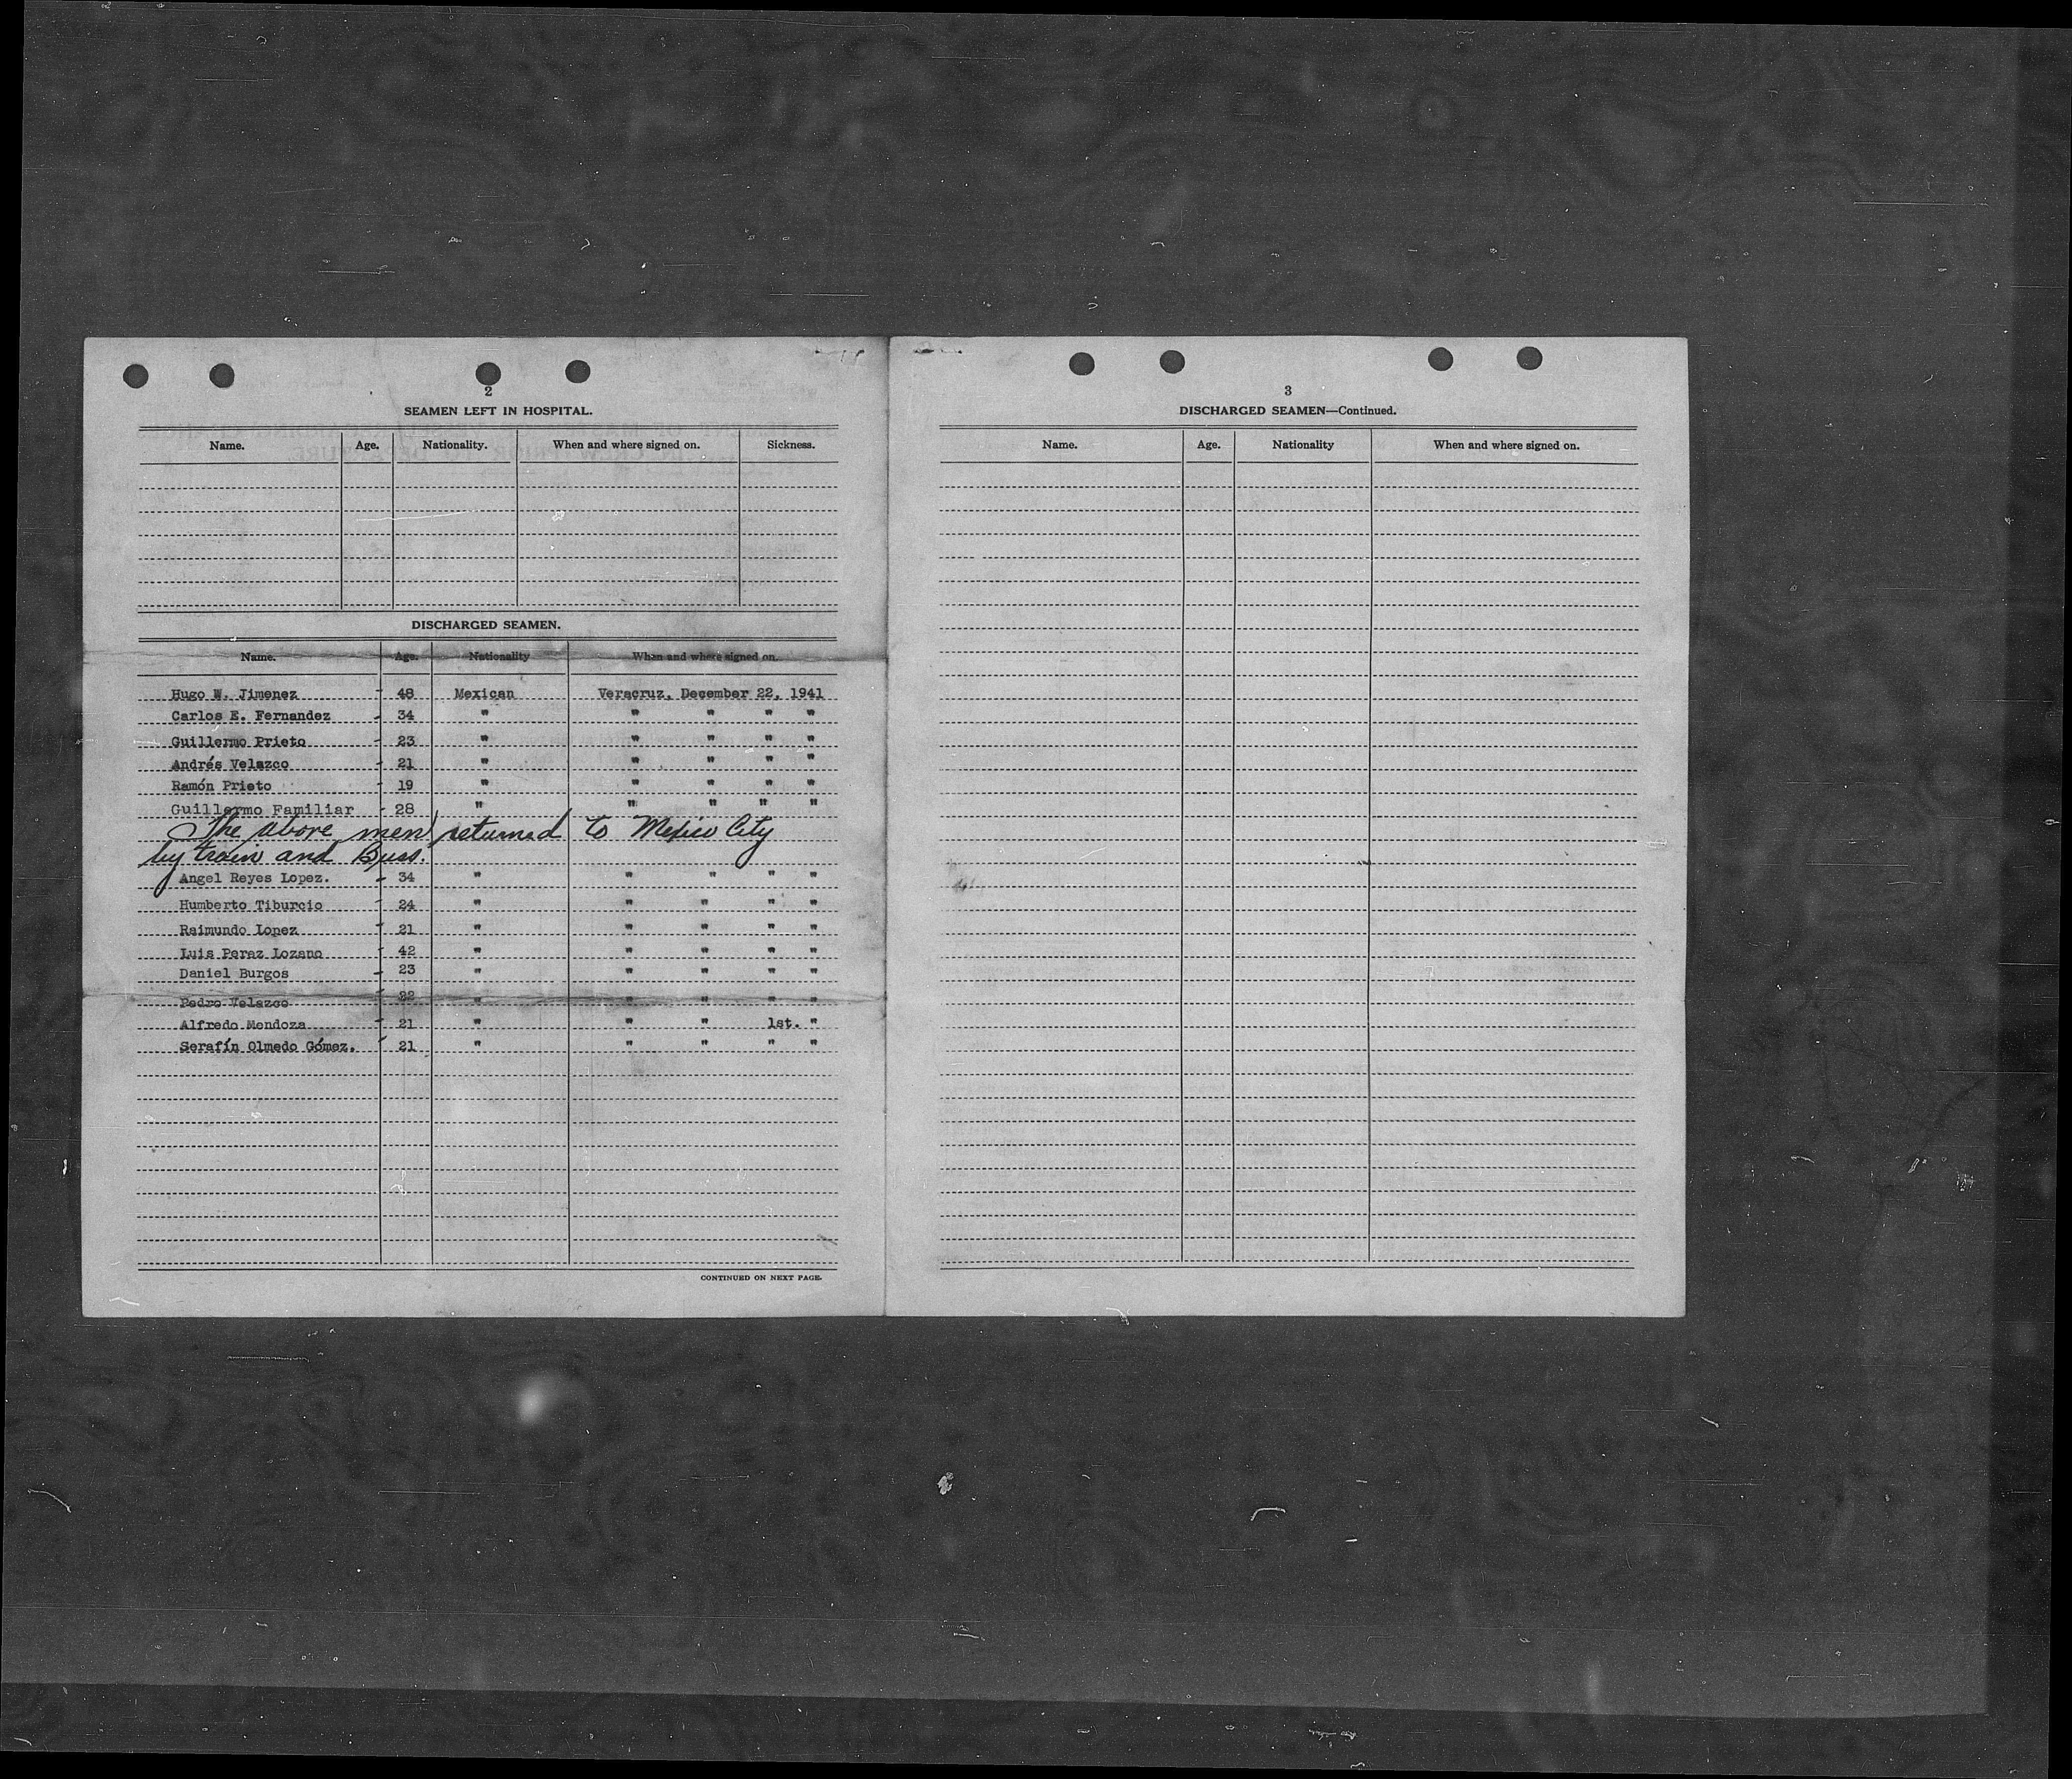 2
SEAMEN LEFT IN HOSPITAL.
Name. Age. Nationality. When and where signed on. Sickness.
DISCHARGED SEAMEN.
Name. Age. Nationality When and where signed on.
Hugo W. Jimenez - 48 Mexican Veracruz, December 22, 1941
Carlos E. Fernandez - 34 " " " " "
Guillermo Prieto - 23 " " " " "
Andrés Velazco - 21 " " " " "
Ramón Prieto - 19 " " " " "
Guillermo Familiar - 28 " " " " "
The above men returned to Mexico City
by train and Buss.
Angel Reyes Lopez. - 34 " " " " "
Humberto Tiburcio - 24 " " " " "
Raimundo Lopez - 21 " " " " "
Luis Perez Lozano - 42 " " " " "
Daniel Burgos - 23 " " " " "
Pedro Velazco - 22 " " " " "
Alfredo Mendoza - 21 " " " 1st. "
Serafín Olmedo Gómez. - 21 " " " " "
CONTINUED ON NEXT PAGE.
3
DISCHARGED SEAMEN—Continued.
Name. Age. Nationality When and where signed on.